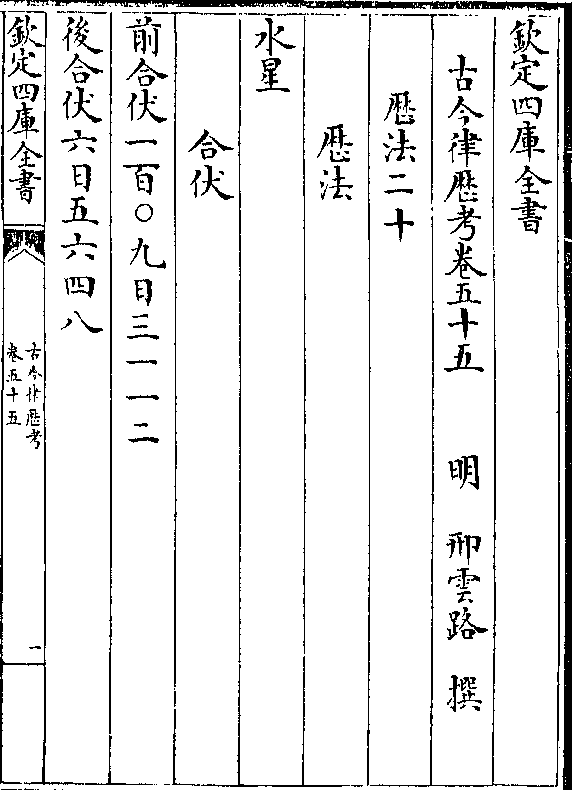 欽定四庫全書
古今律歴考卷五十五 明 邢雲路 撰
歴法二十
歴法
水星
合伏
前合伏一百〇九日三一一二
後合伏六日五六四八
欽定四庫全書
古今律歴考
卷五十五
一